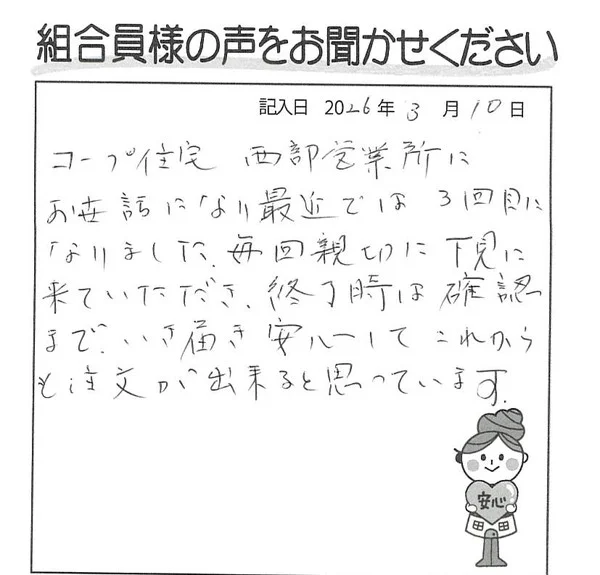 組合員様の声をお聞かせください
記入日 2026年 3 月 10 日
コープ住宅 西部営業所に
お世話になり最近では 3回目に
なりました。毎回親切に下見に
来ていただき、終了時は確認
まで、いき届き安心して これから
も注文が出来ると思っています。
安心